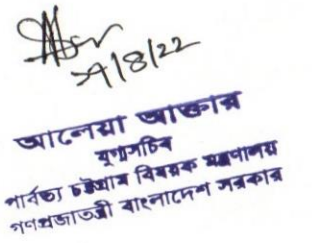 ২৭/8/22
আলেয়া আক্তার
যুগ্মসচিব
পার্বত্য চট্টগ্রাম বিষয়ক মন্ত্রণালয়
গণপ্রজাতন্ত্রী বাংলাদেশ সরকার